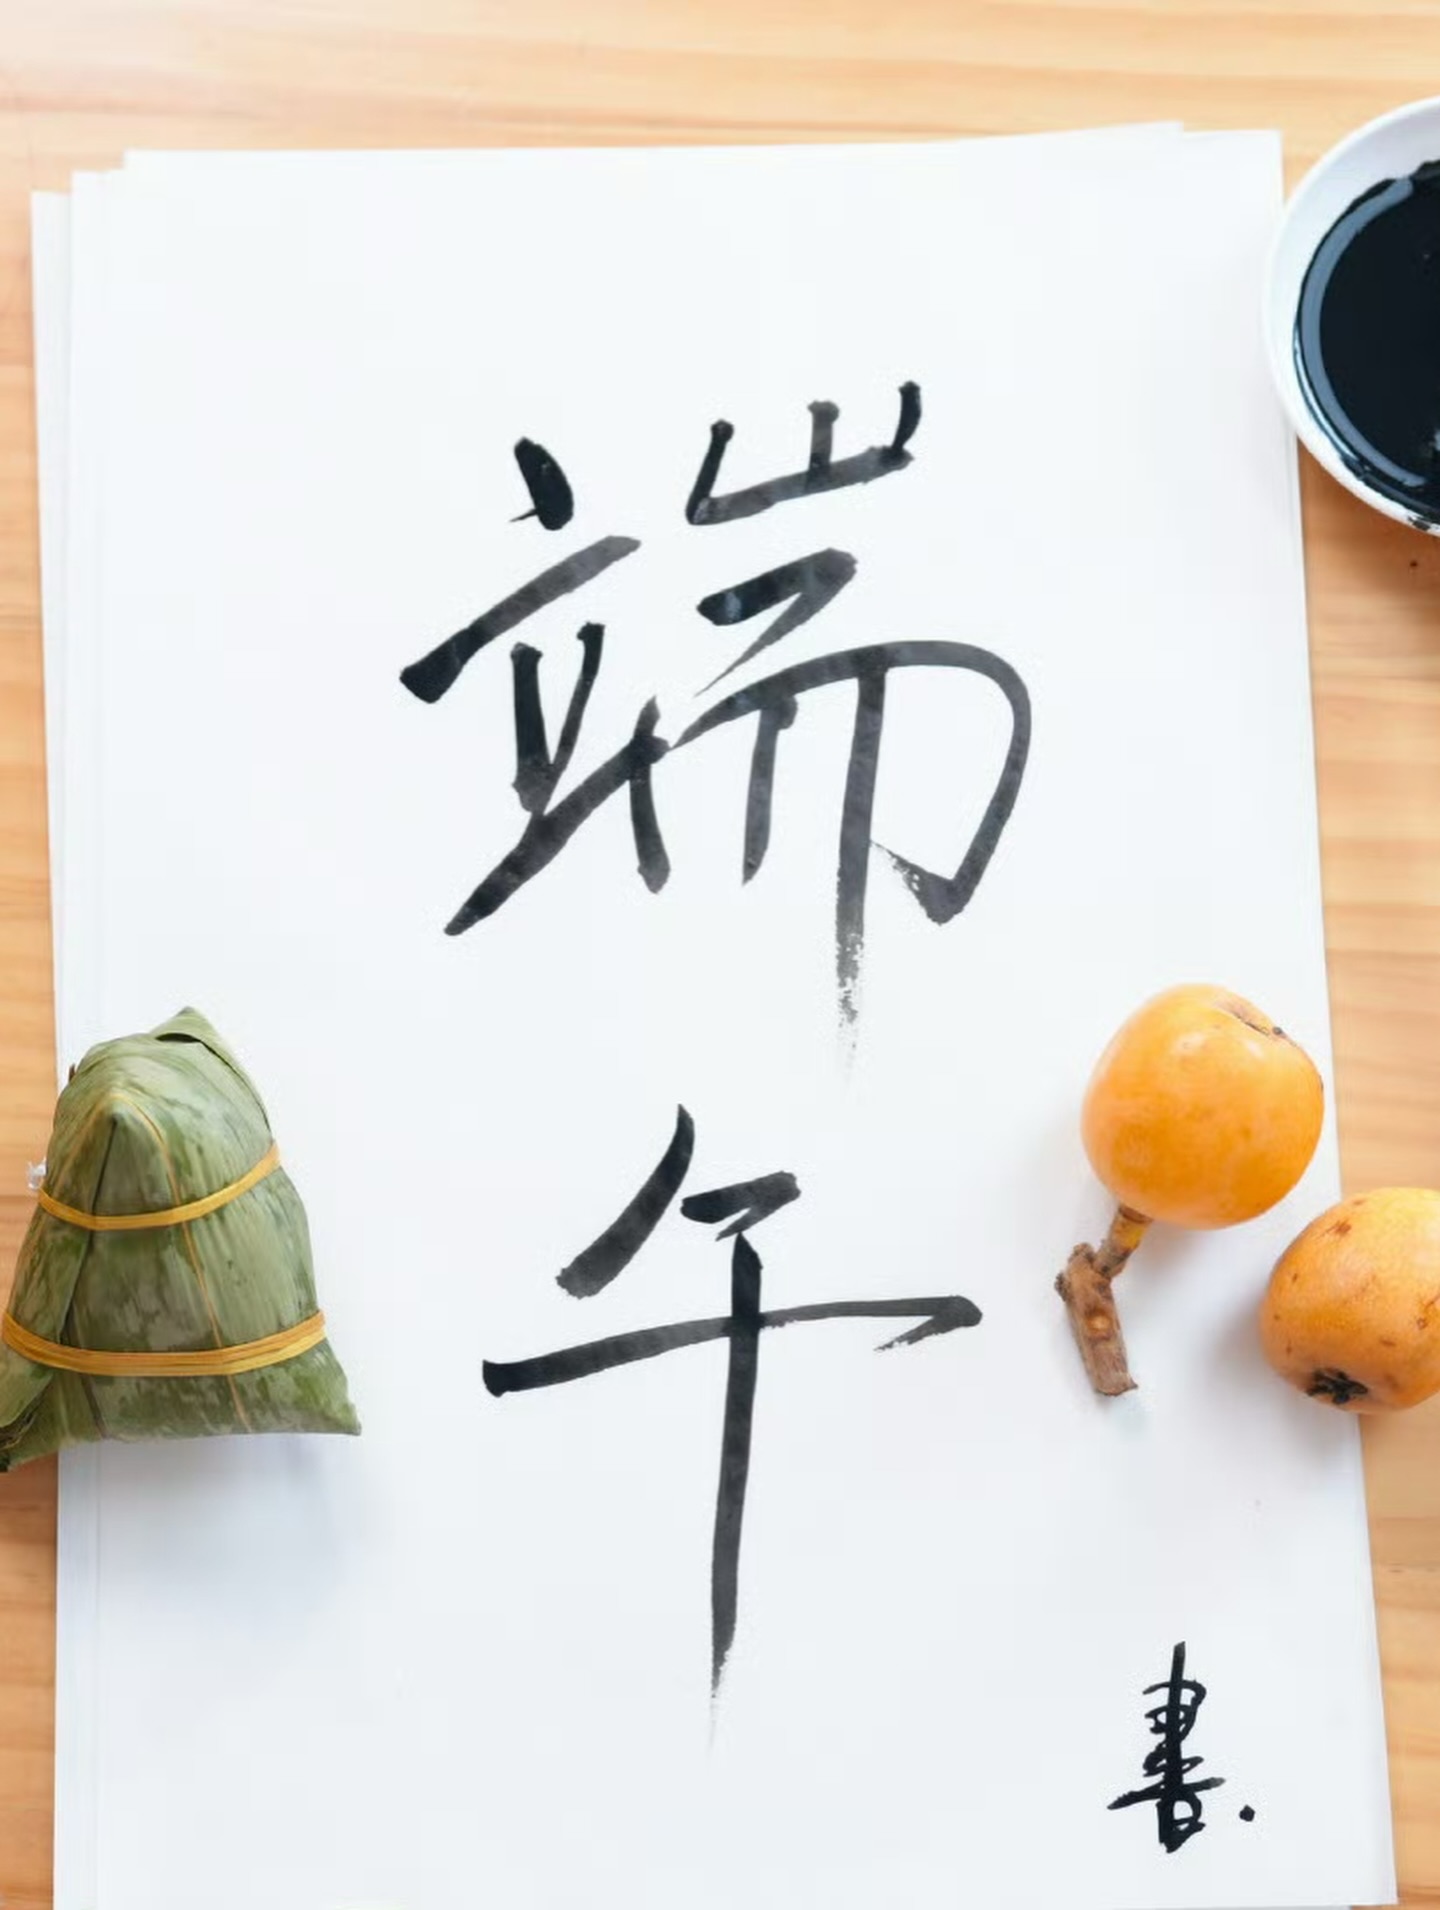 端
午
書